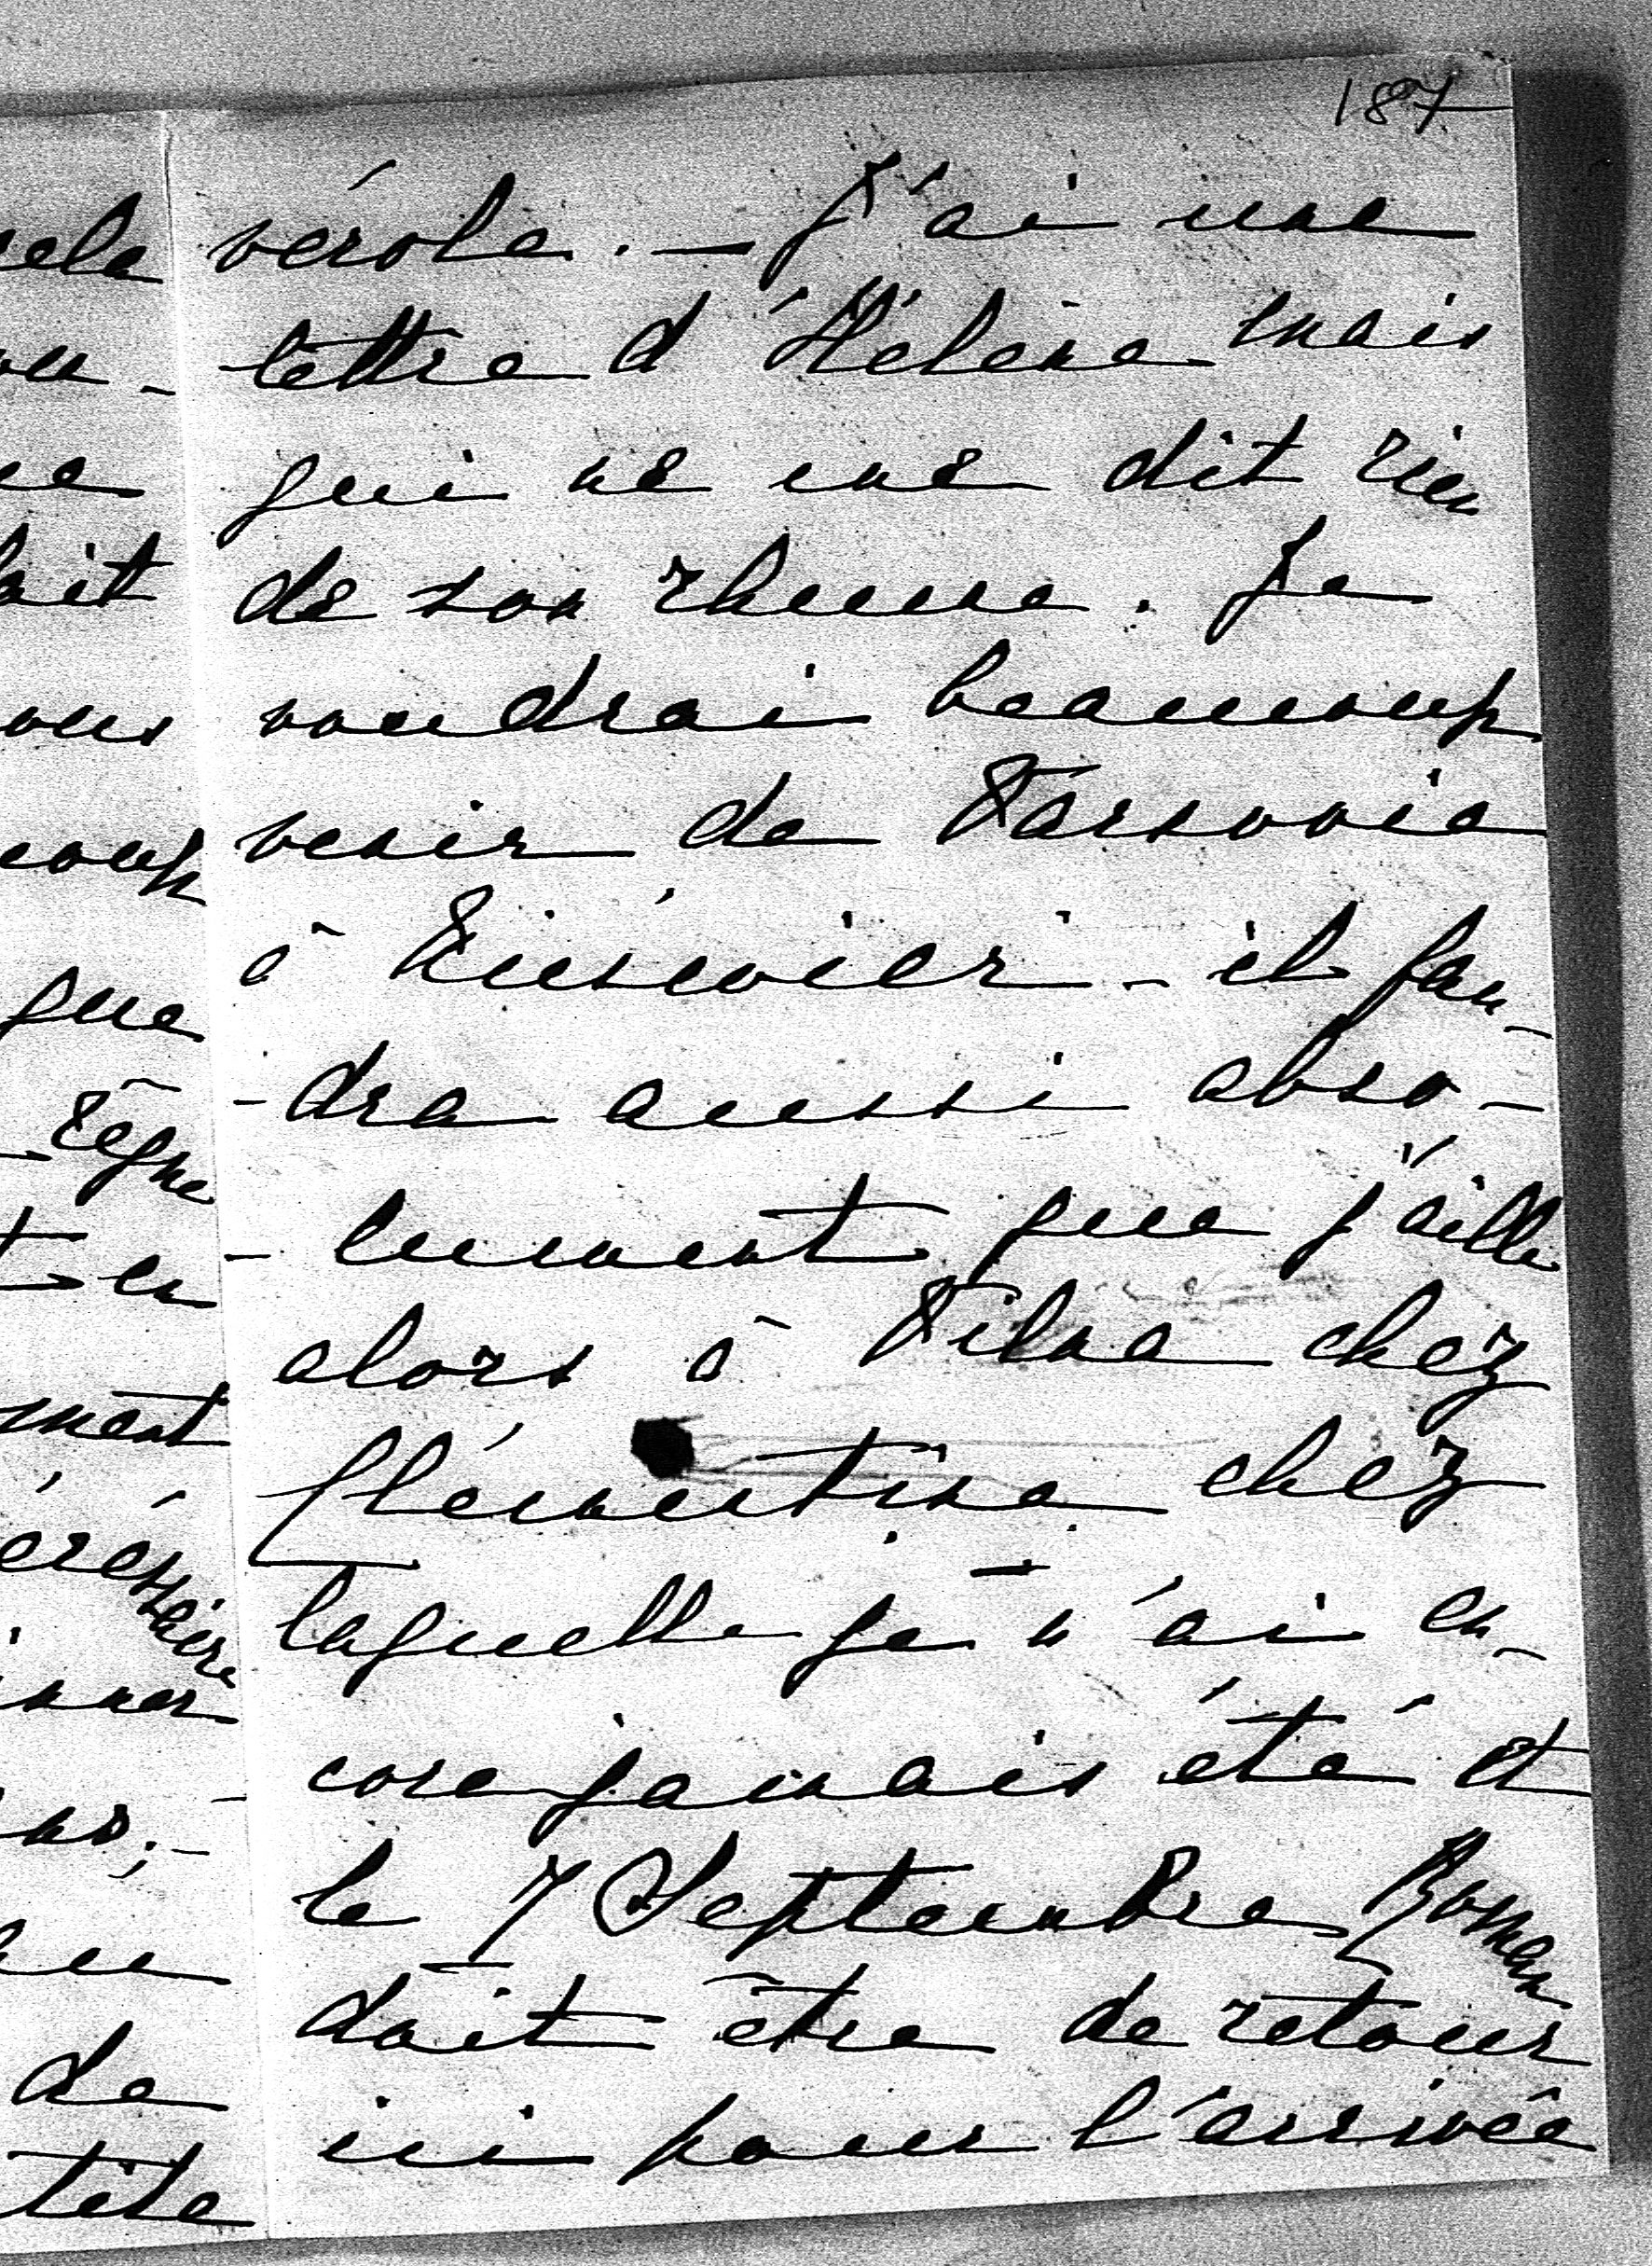 187
vérole. — J'ai une
lettre d'Hélène mais
qui ne me dit rien
de son rhume. Je
voudrai beaucoup
venir de Varsovie
à - il fau-
-dra aussi abso-
-lument que j'aille
alors à Vilna chez
Clémentine chez
laquelle je n'ai en-
-core jamais été et
le 7 Septembre Roman
doit être de retour
ici pour l'arrivée